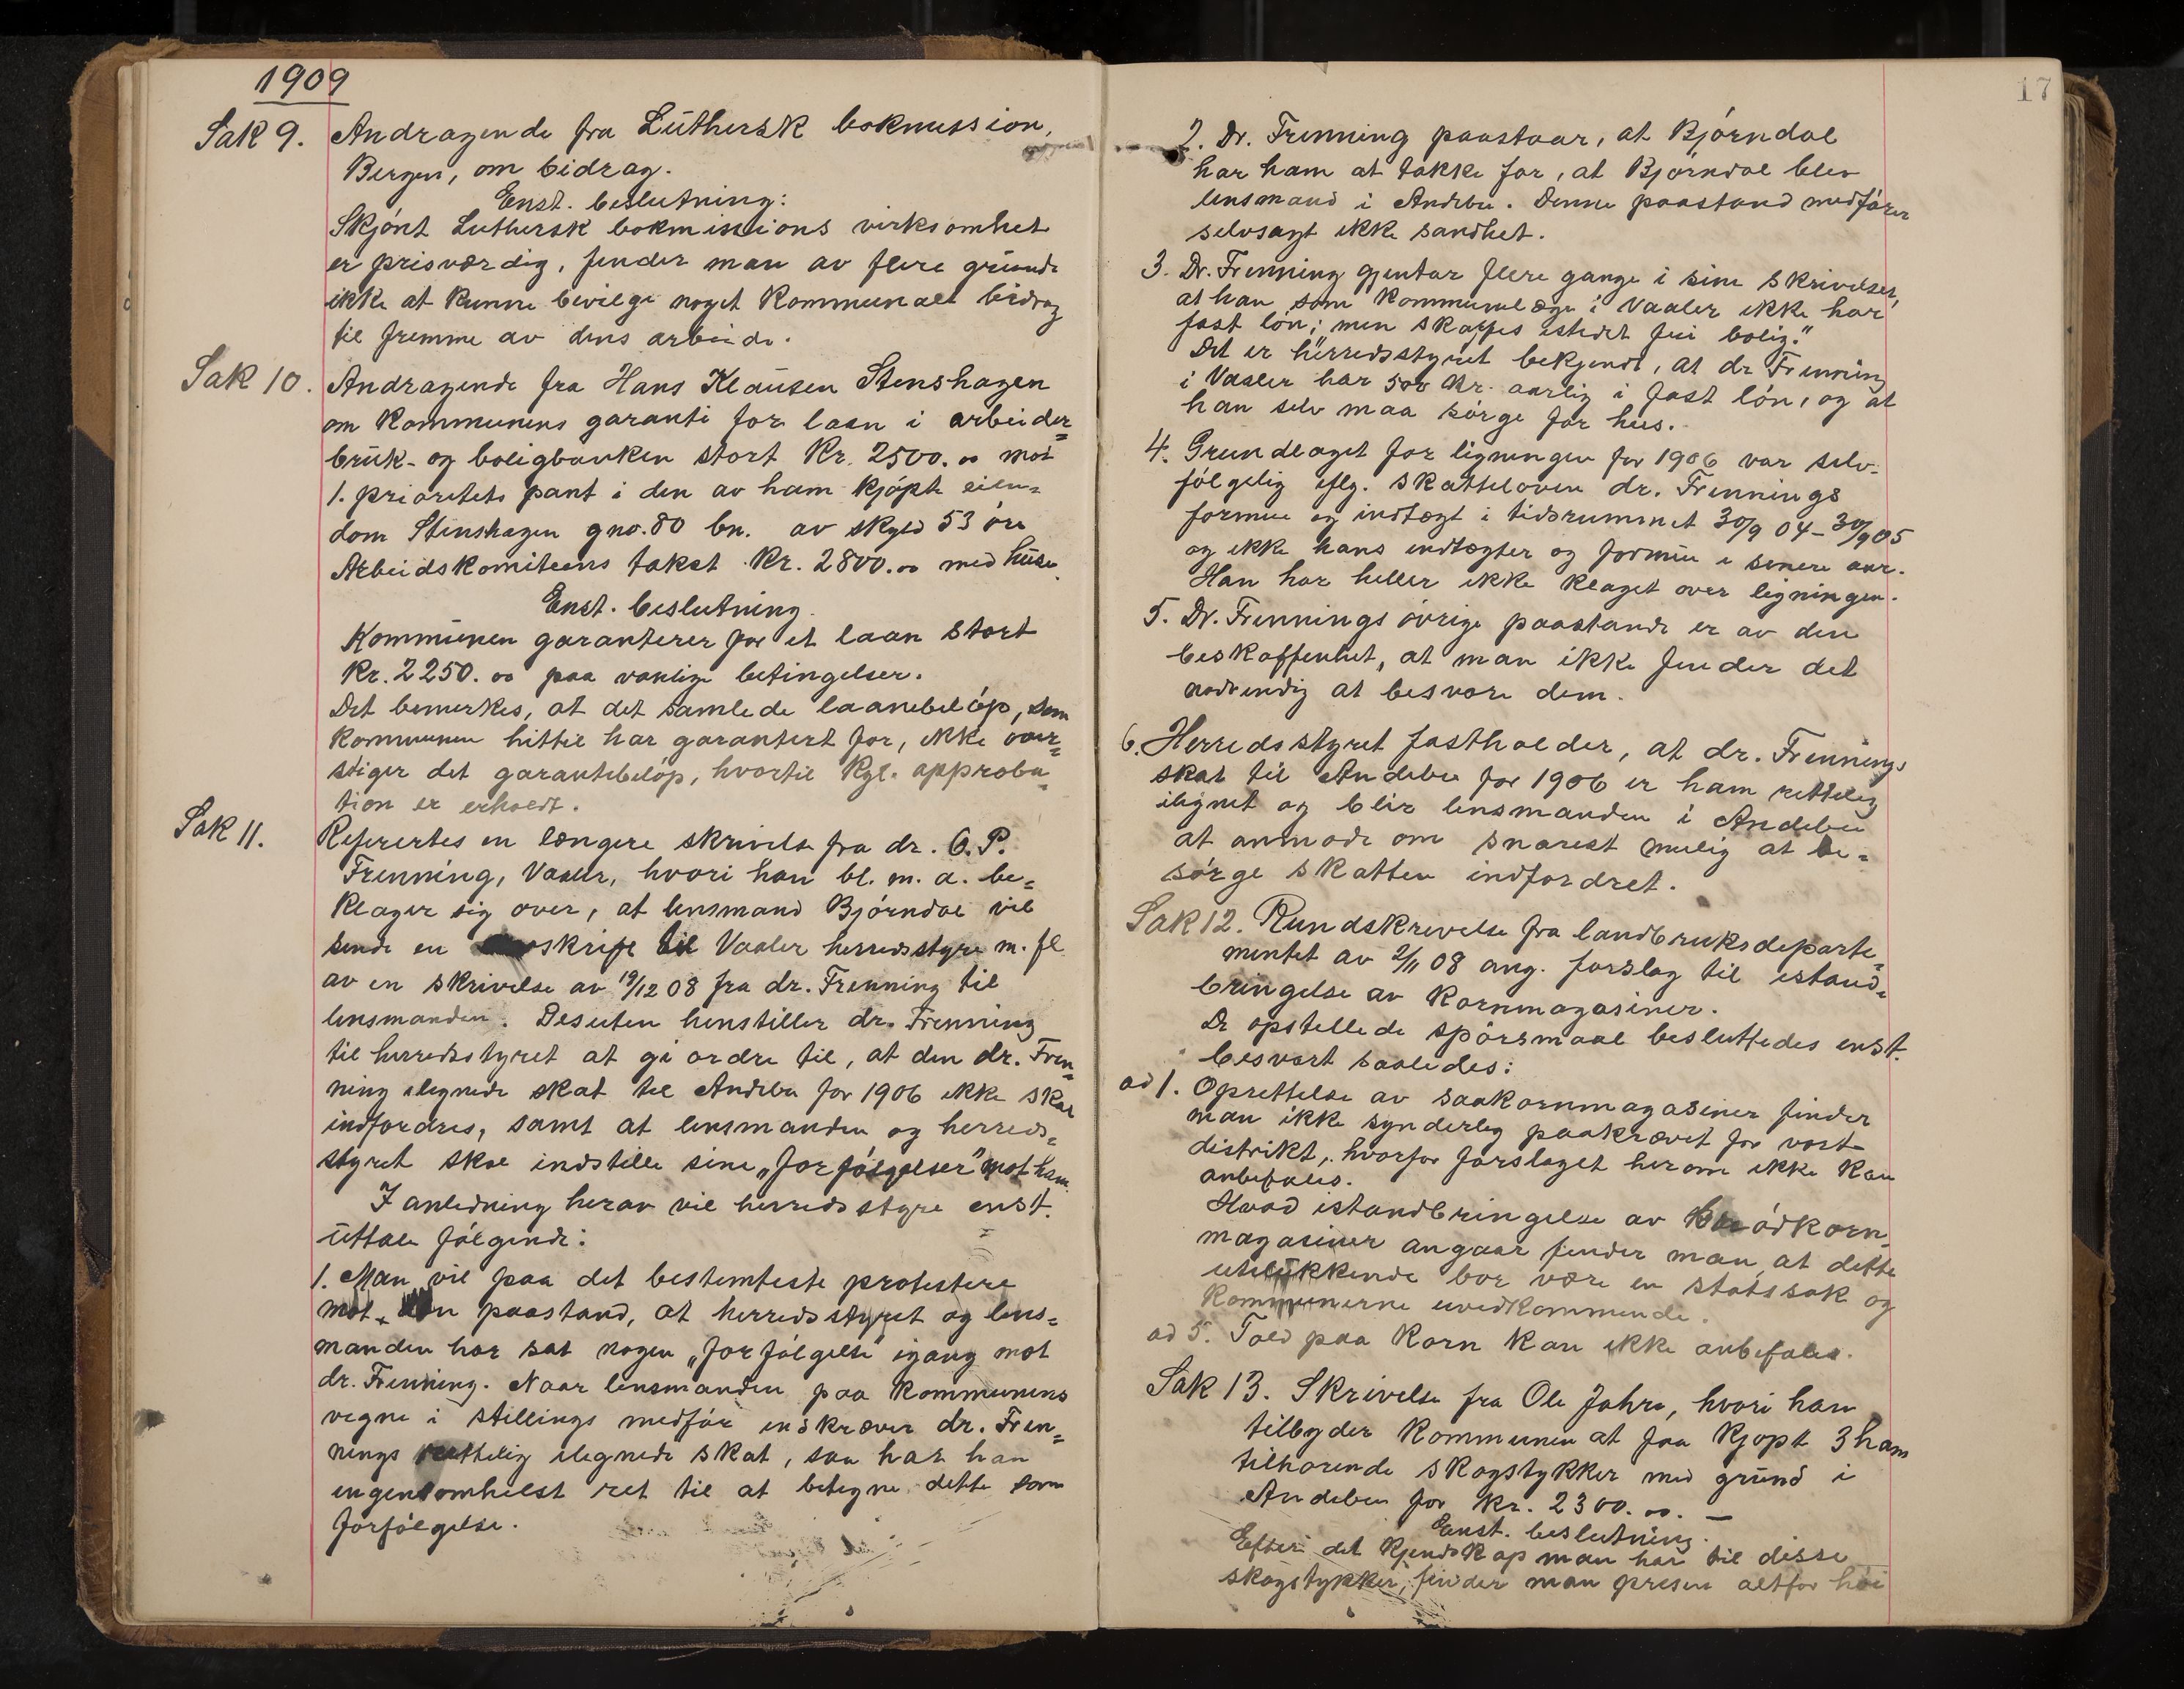 1909
Sak 9. Andragende fra Luthersk bokmission,
Bergen, om bidrag.
Enst. beslutning:
Skjönt Luthersk bokmissions virksomhet
er prisværdig, finder man av flere grunde
ikke at kunne bevilge noget kommunalt bidrag
til fremme av dens arbeide.
Sak 10. Andragende fra Hans Klausen Stenshagen
om kommunens garanti for laan i arbeider=
bruk- og boligbanken stort kr. 2500.00 mot
1. prioritets pant i den av ham kjöpte eien=
dom Stenshagen gno. 80 bn. av skyld 53 öre
Arbeidskomiteens takst kr. 2800.00 med huse.
Enst. beslutning.
Kommunen garanterer for et laan stort
kr. 2250.00 paa vanlige betingelser.
Det bemerkes, at det samlede laanebelöp, som
kommunen hittil har garantert for, ikke over=
stiger det garantibelöp, hvortil kgl. approba=
tion er erholdt.
Sak 11. Refertes en længere skrivelse fra dr. O. P.
Frenning, Vaaler, hvori han bl. m. a. be=
klager sig over, at lensmand Björndal vil
sende en skrift til Vaaler herredsstyre m. fl.
av en skrivelse av 19/12 08 fra dr. Frenning til
lensmanden. Desuten henstiller dr. Frenning
til herredsstyret at gi ordre til, at den dr. Fren=
ning ilignede skat til Andebu for 1906 ikke skal
indfordres, samt at lensmanden og herreds=
styret skal indstille sine „forfölgelser" mot ham.
I anledning herav vil herredsstyre enst.
uttale fölgende:
1. Man vil paa det bestemteste protestere
mot den paastand, at herredsstyret og lens=
manden har sat nogen „forfölgelse" igang mot
dr. Frenning. Naar lensmanden paa kommunens
vegne i stillings medför inskræver dr. Fren=
nings rettelig ilegnede skat, saa har han
ingensomhelst ret til at betegne dette som
forfölgelse.
17
2. Dr. Frenning paastaar, at Björndal
har ham at takke for, at Björndal blev
lensmand i Andebu. Denne paastand medförer
selvsagt ikke sandhet.
3. Dr. Frenning gjentar flere gange i sine skrivelser,
at han som kommunelæge i Vaaler ikke har
fast lön; men skaffes istedet fri bolig."
Det er herredsstyret bekjendt, at dr Frenning
i Vaaler har 500 kr. aarlig i fast lön, og at
han selv maa sörge for hus.
4. Grundlaget for ligningen for 1906 var selv-
fölgelig iflg. skatteloven dr. Frennings
formue og indtægt i tidsrummet 30/9 04 - 30/9 05
og ikke hans indtægter og formue i senere aar.
Han har heller ikke klaget over ligningen.
5. Dr. Frennings övrige paastande er av den
beskaffenhet, at man ikke finder det
nödvendig at besvare dem.
6. Herredsstyret fastholder, at dr. Frennings
skat til Andebu for 1906 er ham rettelig
ilignet og blir lensmanden i Andebu
at anmode om snarest mulig at be=
sörge skatten indfordret.
Sak 12. Rundskrivelse fra landbruksdeparte=
mentet av 2/11 08 ang. forslag til istand=
bringelse av kornmagasiner.
De opstillede spörsmaal besluttedes enst.
besvart saaledes:
ad 1. Oprettelse av saakornmagasiner finder
man ikke synderlig paakrævet for vort
distrikt, hvorfor forslaget herom ikke kan
anbefales.
Hvad istandbringelse av brödkorn-
magasiner angaar finder man at dette
utelukkende bor være en statssak og
kommunerne uvedkommende.
ad 5. Told paa korn kan ikke anbefales.
Sak 13. Skrivelse fra Ole Jahre, hvori han
tilbyder kommunen at faa kjopt 3 ham
tilhorende skogstykker med grund i
Andebu for kr. 2300.00. —
Enst. beslutning.
Efter det kjendskap man har til disse
skogstykker, finder man prisen altfor höi